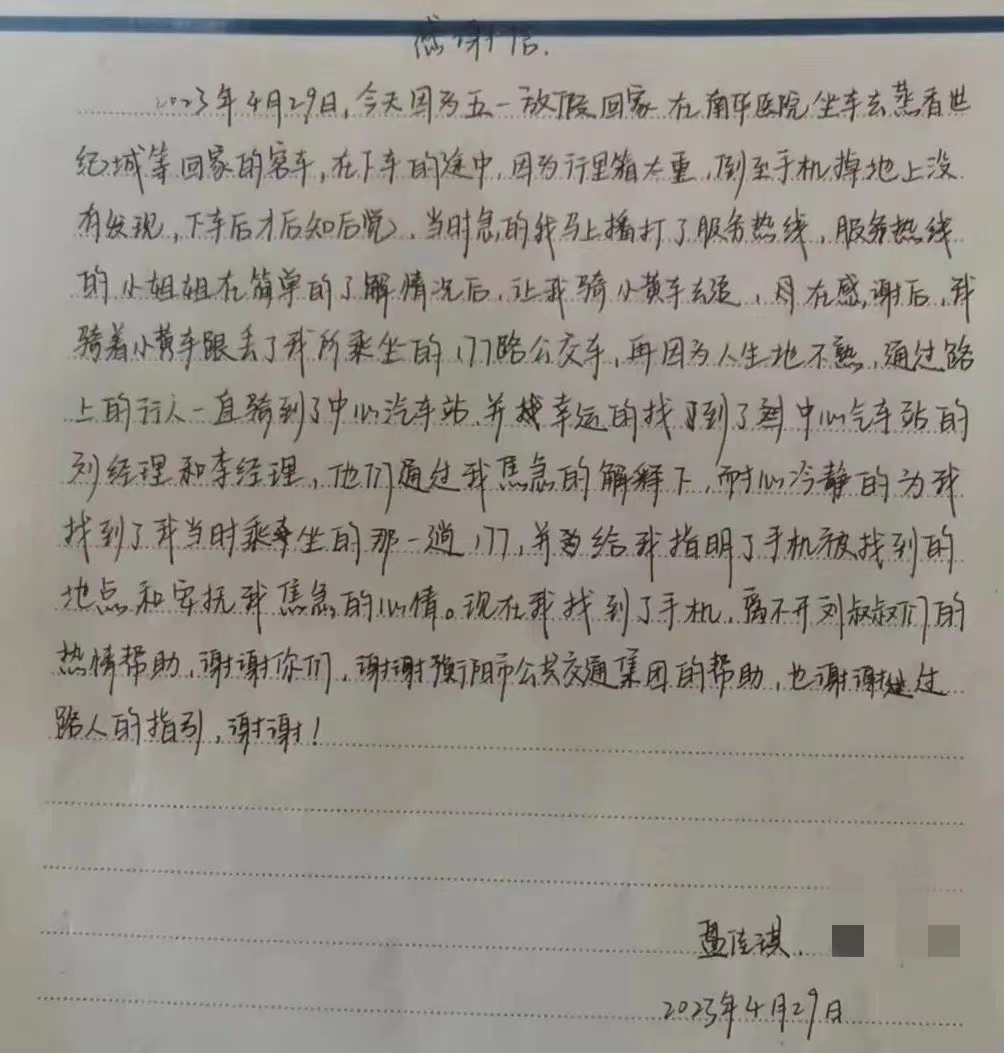 感谢信.
2023年4月29日,今天因为五一放假回家在南华医院坐车去蒸香世
纪城等回家的客车,在下车的途中,因为行里箱太重,倒至手机掉地上没
有发现,下车后才后知后觉,当时急的我马上播打了服务热线,服务热线
的小姐姐在简单的了解情况后,让我骑小黄车去追,在感谢后,我
骑着小黄车跟丢了我所乘坐的177路公交车,再因为人生地不熟,通过路
上的行人一直骑到了中心汽车站.并幸运的找到了中心汽车站的
刘经理和李经理,他们通过我焦急的解释下,耐心冷静的为我
找到了我当时乘坐的那一趟177,并给我指明了手机被找到的
地点和安抚我焦急的心情。现在我找到了手机,离不开刘叔叔们的
热情帮助,谢谢你们,谢谢衡阳市公共交通集团的帮助,也谢谢过
路人的指引,谢谢!
佳琪.
2023年4月29日